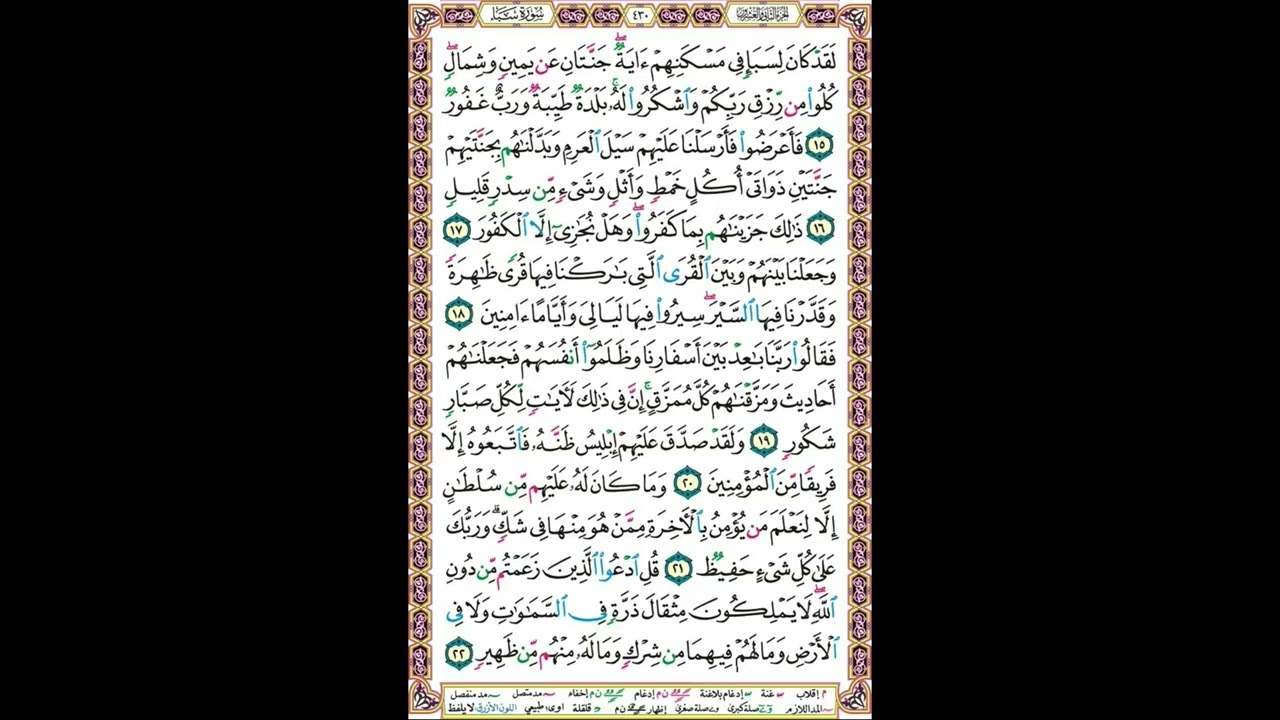 الجزء الثاني والعشرون ٤٣٠ سُورَةُ سَبَإٍ
لَقَدْ كَانَ لِسَبَإٍ فِي مَسْكَنِهِمْ ءَايَةٌ ۖ جَنَّتَانِ عَن يَمِينٍ وَشِمَالٍ ۖ
كُلُوا۟ مِن رِّزْقِ رَبِّكُمْ وَٱشْكُرُوا۟ لَهُۥ ۚ بَلْدَةٌ طَيِّبَةٌ وَرَبٌّ غَفُورٌ
١٥ فَأَعْرَضُوا۟ فَأَرْسَلْنَا عَلَيْهِمْ سَيْلَ ٱلْعَرِمِ وَبَدَّلْنَٰهُم بِجَنَّتَيْهِمْ
جَنَّتَيْنِ ذَوَاتَىْ أُكُلٍ خَمْطٍ وَأَثْلٍ وَشَىْءٍ مِّن سِدْرٍ قَلِيلٍ
١٦ ذَٰلِكَ جَزَيْنَٰهُم بِمَا كَفَرُوا۟ ۖ وَهَلْ نُجَٰزِىٓ إِلَّا ٱلْكَفُورَ ١٧
وَجَعَلْنَا بَيْنَهُمْ وَبَيْنَ ٱلْقُرَى ٱلَّتِى بَٰرَكْنَا فِيهَا قُرًى ظَٰهِرَةً
وَقَدَّرْنَا فِيهَا ٱلسَّيْرَ ۖ سِيرُوا۟ فِيهَا لَيَالِىَ وَأَيَّامًا ءَامِنِينَ ١٨
فَقَالُوا۟ رَبَّنَا بَٰعِدْ بَيْنَ أَسْفَارِنَا وَظَلَمُوٓا۟ أَنفُسَهُمْ فَجَعَلْنَٰهُمْ
أَحَادِيثَ وَمَزَّقْنَٰهُمْ كُلَّ مُمَزَّقٍ ۚ إِنَّ فِى ذَٰلِكَ لَءَايَٰتٍ لِّكُلِّ صَبَّارٍ
شَكُورٍ ١٩ وَلَقَدْ صَدَّقَ عَلَيْهِمْ إِبْلِيسُ ظَنَّهُۥ فَٱتَّبَعُوهُ إِلَّا
فَرِيقًا مِّنَ ٱلْمُؤْمِنِينَ ٢٠ وَمَا كَانَ لَهُۥ عَلَيْهِم مِّن سُلْطَٰنٍ
إِلَّا لِنَعْلَمَ مَن يُؤْمِنُ بِٱلْءَاخِرَةِ مِمَّنْ هُوَ مِنْهَا فِى شَكٍّ ۗ وَرَبُّكَ
عَلَىٰ كُلِّ شَىْءٍ حَفِيظٌ ٢١ قُلِ ٱدْعُوا۟ ٱلَّذِينَ زَعَمْتُم مِّن دُونِ
ٱللَّهِ ۖ لَا يَمْلِكُونَ مِثْقَالَ ذَرَّةٍ فِى ٱلسَّمَٰوَٰتِ وَلَا فِى
ٱلْأَرْضِ وَمَا لَهُمْ فِيهِمَا مِن شِرْكٍ وَمَا لَهُۥ مِنْهُم مِّن ظَهِيرٍ ٢٢
م إقلاب غنة إدغام بلاغنة ن م إدغام ن م إخفاء مد متصل مد منفصل
المد اللازم صلة كبرى صلة صغرى إظهار ن م قلقلة اوى: طبيعي اللون الأزرق لا يلفظ